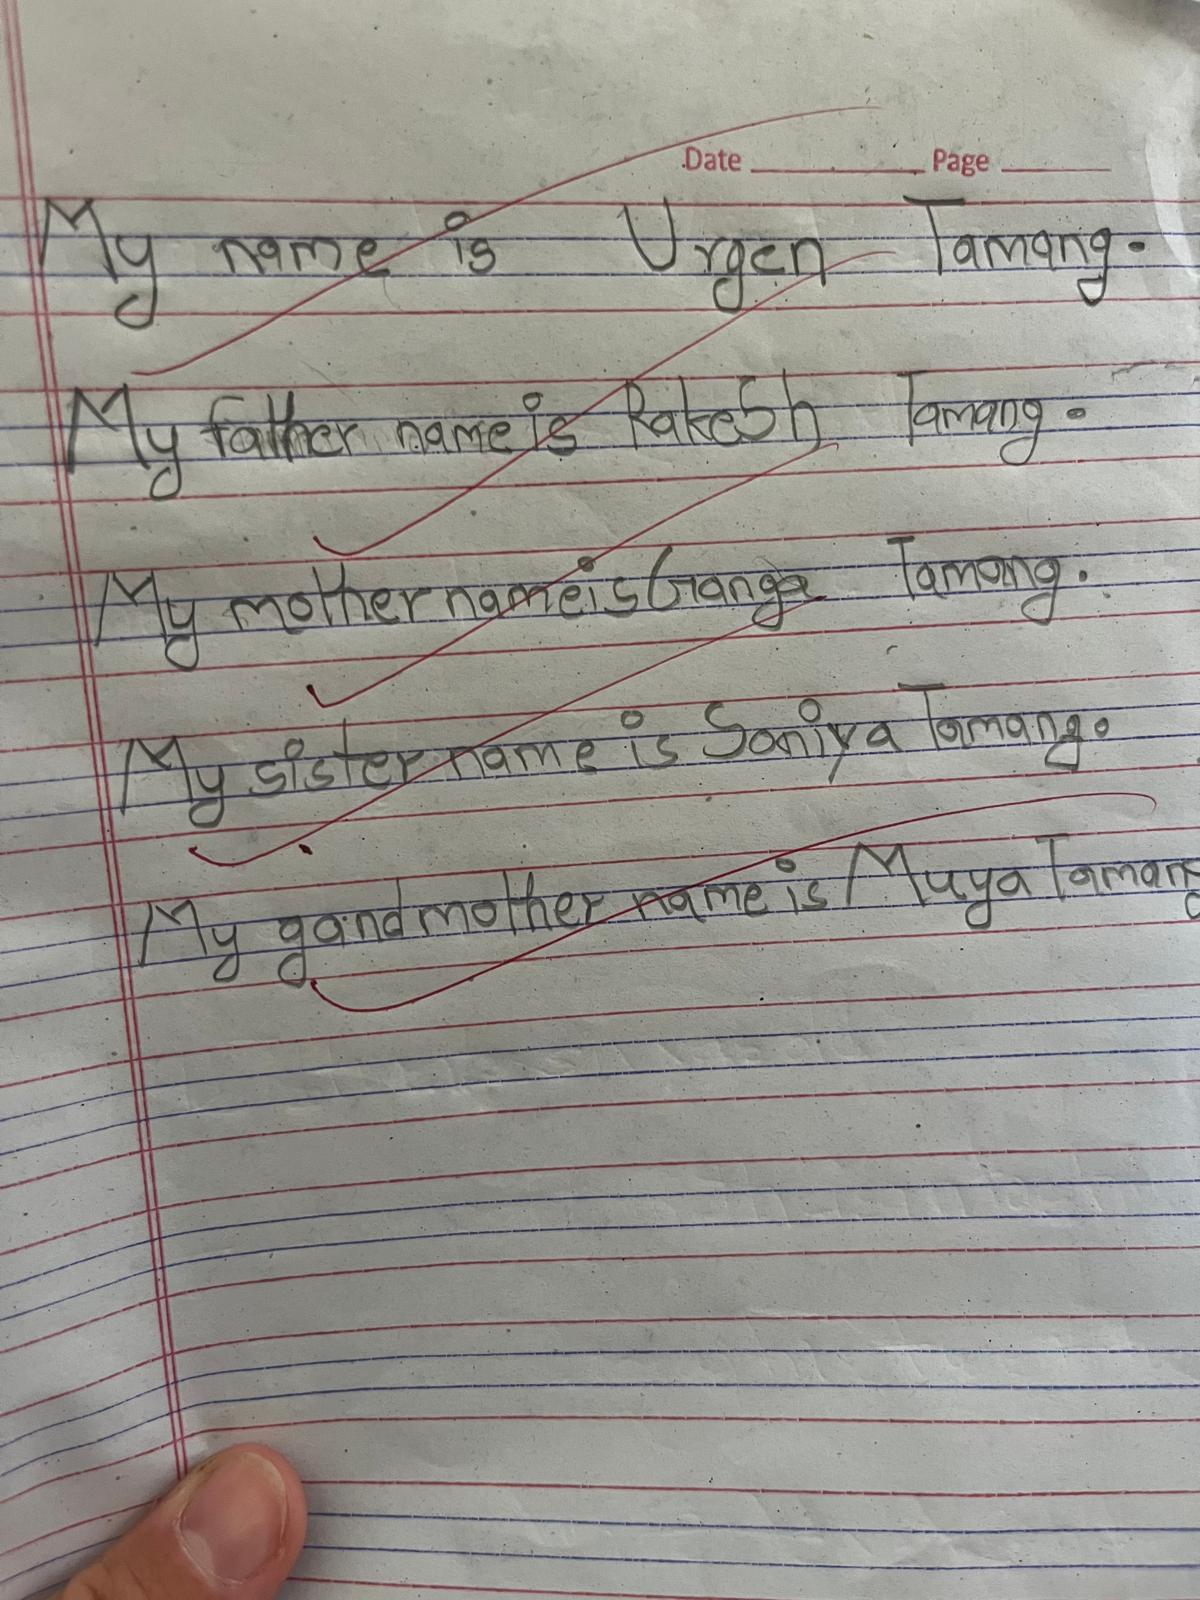 Date Page
My name is Urgen Tamang.
My father name is Rakesh Tamang.
My mother name is Ganga Tamang.
My sister name is Soniya Tamang.
My gandmother name is Muya Tamang